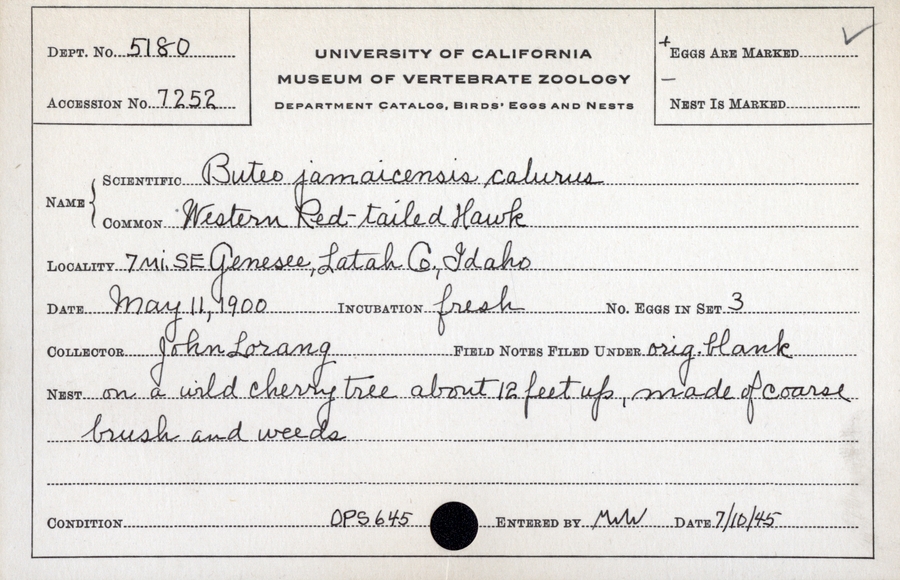 DEPT. No. 5180
ACCESSION No. 7252
UNIVERSITY OF CALIFORNIA
MUSEUM OF VERTEBRATE ZOOLOGY
DEPARTMENT CATALOG, BIRDS' EGGS AND NESTS
+ EGGS ARE MARKED ✓
— NEST IS MARKED
NAME
SCIENTIFIC Buteo jamaicensis calurus
COMMON Western Red-tailed Hawk
LOCALITY 7 mi. SE Genesee, Latah Co., Idaho
DATE May 11, 1900 INCUBATION fresh No. EGGS IN SET 3
COLLECTOR John Lorang FIELD NOTES FILED UNDER orig. blank
NEST on a wild cherry tree about 12 feet up, made of coarse
brush and weeds
CONDITION OPS 645 ENTERED BY MWW DATE 7/10/45